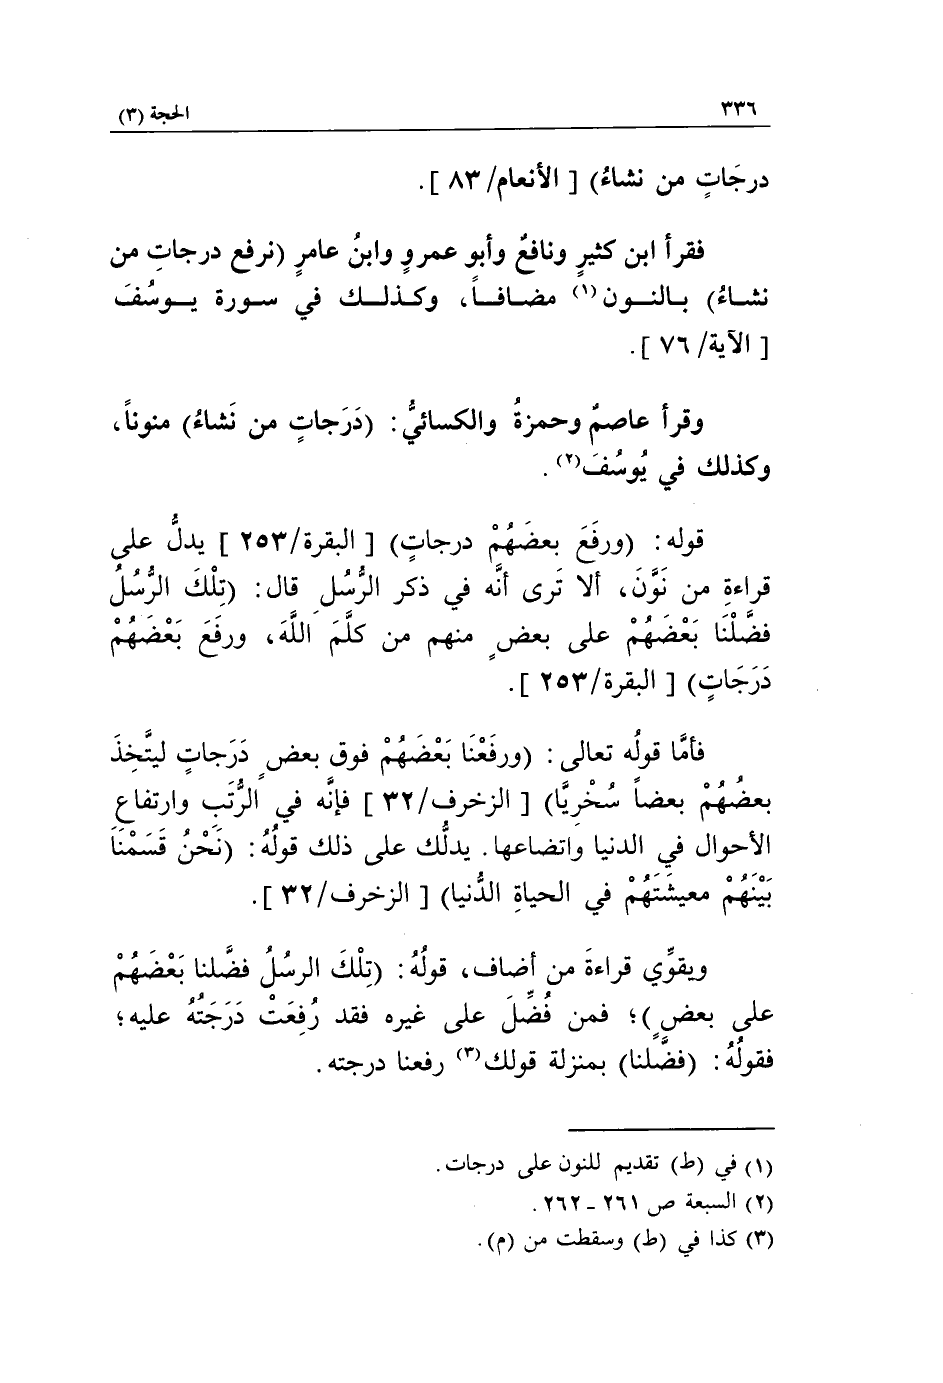 ٣٣٦
الحجة (٣)
درجَاتٍ من نشاءُ) [ الأنعام/ ٨٣ ].
فقرأ ابن كثيرٍ ونافعٌ وأبو عمروٍ وابنُ عامرٍ (نرفع درجاتِ من
نشاءُ) بالنون(١) مضافاً، وكذلك في سورة يوسُفَ
[ الآية/ ٧٦ ].
وقرأ عاصمُ وحمزةُ والكسائيُّ: (دَرَجاتٍ من نَشاءُ) منوناً،
وكذلك في يُوسُفَ(٢).
قوله: (ورفَعَ بعضَهُمْ درجاتٍ) [ البقرة/٢٥٣ ] يدلُّ على
قراءةِ من نَوَّنَ، ألا تَرى أنَّه في ذكر الرُّسُلِ قال: (تِلْكَ الرُّسُلُ
فضَّلْنَا بَعْضَهُمْ على بعضٍ منهم من كلَّمَ اللَّهَ، ورفَعَ بَعْضَهُمْ
دَرَجَاتٍ) [ البقرة/٢٥٣ ].
فأمَّا قولُه تعالى: (ورفَعْنَا بَعْضَهُمْ فوق بعضٍ دَرَجاتٍ ليتَّخِذَ
بعضُهُمْ بعضاً سُخْرِيًّا) [ الزخرف/٣٢ ] فإنَّه في الرُّتَبِ وارتفاعِ
الأحوال في الدنيا واتضاعها. يدلُّك على ذلك قولُهُ: (نَحْنُ قَسَمْنَا
بَيْنَهُمْ معيشَتَهُمْ في الحياةِ الدُّنيا) [ الزخرف/٣٢ ].
ويقوِّي قراءةَ من أضاف، قولُهُ: (تِلْكَ الرسُلُ فضَّلنا بَعْضَهُمْ
على بعضٍ)؛ فمن فُضِّلَ على غيره فقد رُفِعَتْ دَرَجَتُهُ عليه؛
فقولُهُ: (فضَّلنا) بمنزلة قولك(٣) رفعنا درجته.
(١) في (ط) تقديم للنون على درجات.
(٢) السبعة ص ٢٦١ - ٢٦٢.
(٣) كذا في (ط) وسقطت من (م).